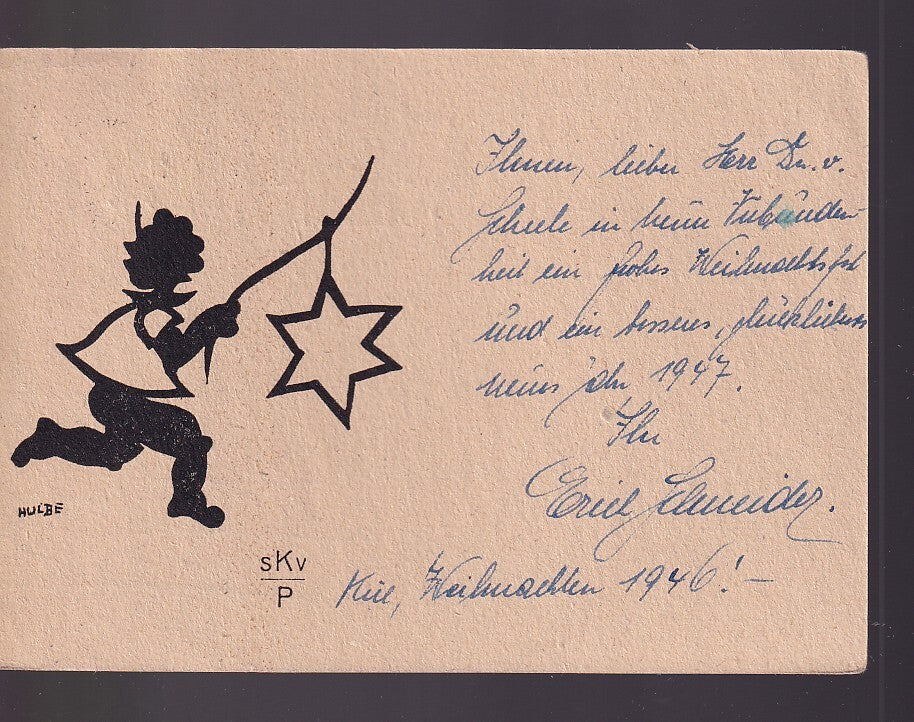 Ihnen, lieber Herr Dr. v.
Scheele in treuer Verbunden-
heit ein frohes Weihnachtsfest
und ein besseres, glückliches
neues Jahr 1947.
Ihr
Erich Schneider.
HULBE
SKV
P
Kiel, Weihnachten 1946! –